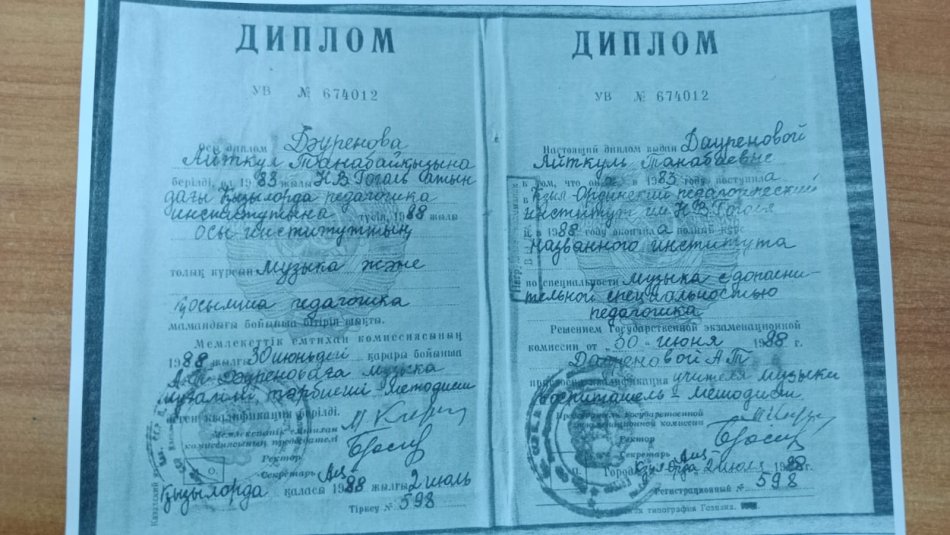 ДИПЛОМ
УВ № 674012
Осы диплом Дәуренова
Айткул Танабайқызына
берілді, ол 1983 жылы Н.В.Гоголь атын
дағы қызылорда педагогика
институтына түсіп, 1988 жылы
осы институттың
толық курсын музыка және
қосымша педагогика
мамандығы бойынша бітіріп шықты.
Мемлекеттік емтихан комиссиясының
1988 жылғы 30 июньдегі қарары бойынша
А.Т. Дәуреноваға музыка
мұғалімі, тәрбиеші методисі
деген квалификация берілді.
Мемлекеттік емтихан
комиссиясының председателі
Ректор
Секретарь
Қызылорда қаласы 1988 жылғы 2 июль
Тіркеу № 598
ДИПЛОМ
УВ № 674012
Настоящий диплом выдан Дауреновой
Айткуль Танабаевне
в том, что она в 1983 году поступила
в Кзыл-Ординский педагогический
институт им. Н.В.Гоголя
и в 1988 году окончила полный курс
названного института
по специальности музыка с дополни-
тельной специальностью
педагогика
Решением Государственной экзаменационной
комиссии от 30 июня 1988 г.
Дауреновой А.Т.
присвоена квалификация учителя музыки
воспитатель - методист
Председатель Государственной
экзаменационной комиссии
Ректор
Секретарь
Город Кзыл-Орда 2 июля 1988 г.
Регистрационный № 598
типография Гознака.